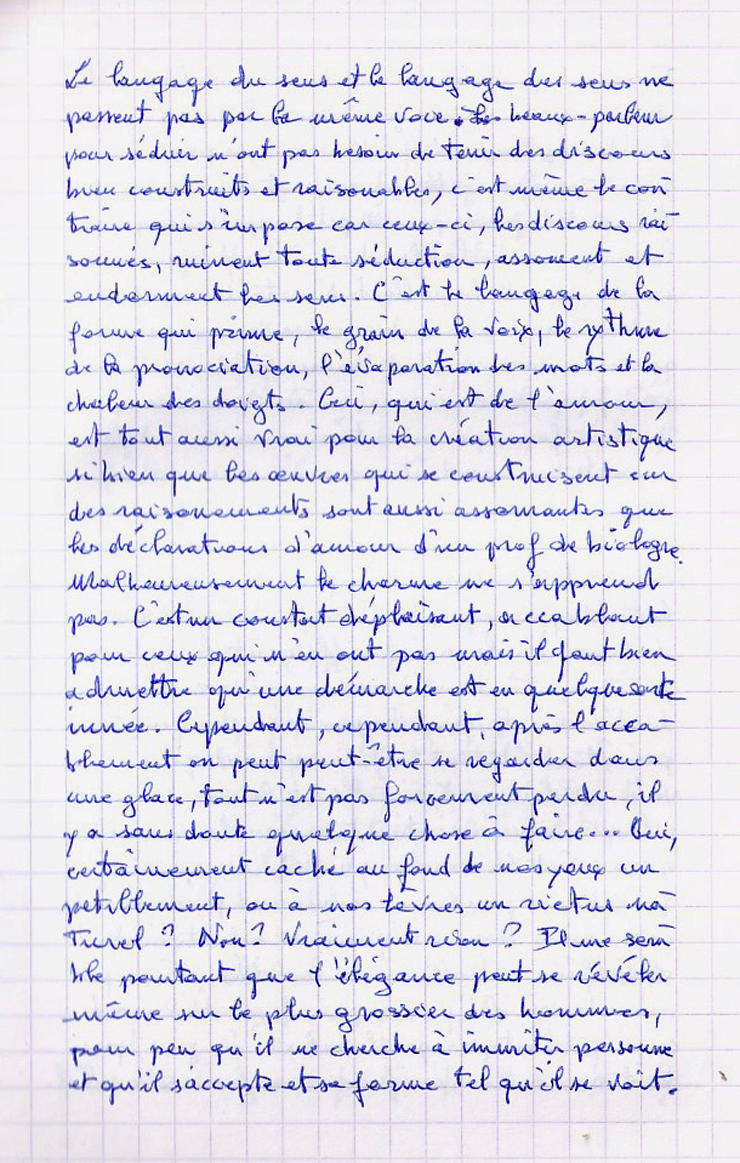 Le langage du sens et le langage des sens ne
passent pas par la même voie. Les beaux-parleur
pour séduir n'ont pas besoin de tenir des discours
bien construits et raisonables, c'est même le con
traire qui s'impose car ceux-ci, les discours rai
sonnés, ruinent toute séduction, assoment et
endorment les sens. C'est le langage de la
forme qui prime, le grain de la voix, le rythme
de la pronociation, l'évaporation des mots et la
chaleur des doigts. Ceci, qui est de l'amour,
est tout aussi vrai pour la création artistique
si bien que les œuvres qui se construisent sur
des raisonements sont aussi assomantes que
les déclarations d'amour d'un prof de biologie.
Malheureusement le charme ne s'apprend
pas. C'est un constat déplaisant, accablant
pour ceux qui n'en ont pas mais il faut bien
admettre qu'une démarche est en quelque sorte
innée. Cependant, cependant, après l'acca-
blement on peut peut-être se regarder dans
une glace, tout n'est pas forcement perdu, il
y a sans doute quelque chose à faire... Oui,
certainement caché au fond de nos yeux un
petillement, ou à nos lèvres un rictus na
turel ? Non ? Vraiment rien ? Il me sem
ble pourtant que l'élégance peut se révéler
même sur le plus grossier des hommes,
pour peu qu'il ne cherche à immiter personne
et qu'il s'accepte et se forme tel qu'il se voit.